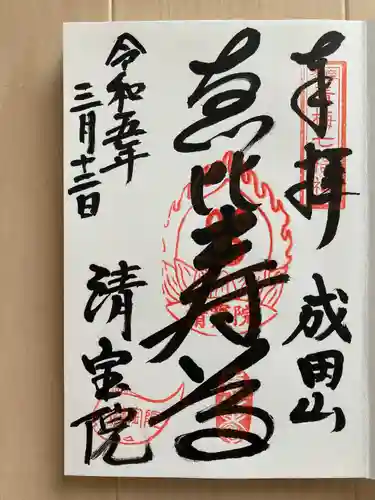 奉拝
成田山
恵比寿尊
令和五年
三月十二日
清宝院